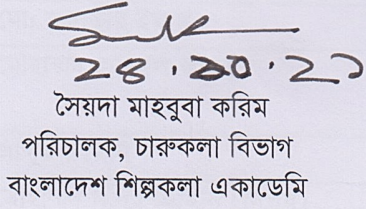 সৈয়দা মাহবুবা করিম
পরিচালক, চারুকলা বিভাগ
বাংলাদেশ শিল্পকলা একাডেমি